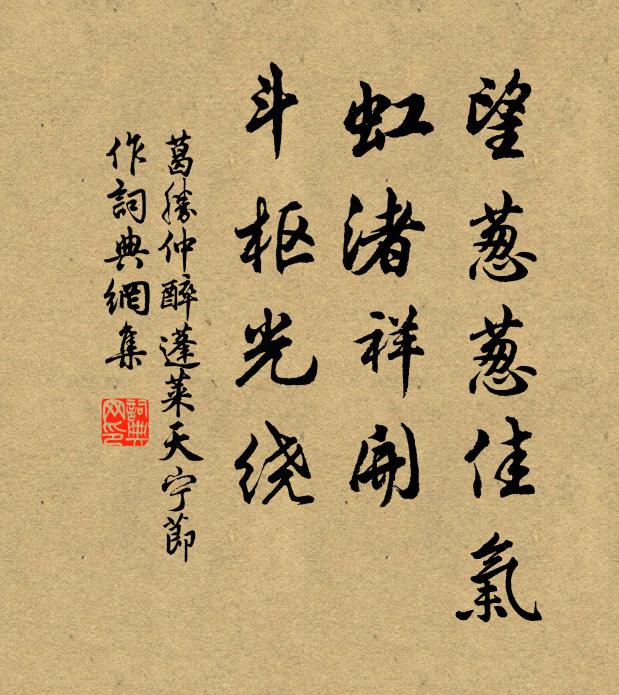 望葱葱佳氣
虹渚祥開
斗枢光绕
葛勝仲醉蓬莱天宁節
作詞典網集
詞典
网印